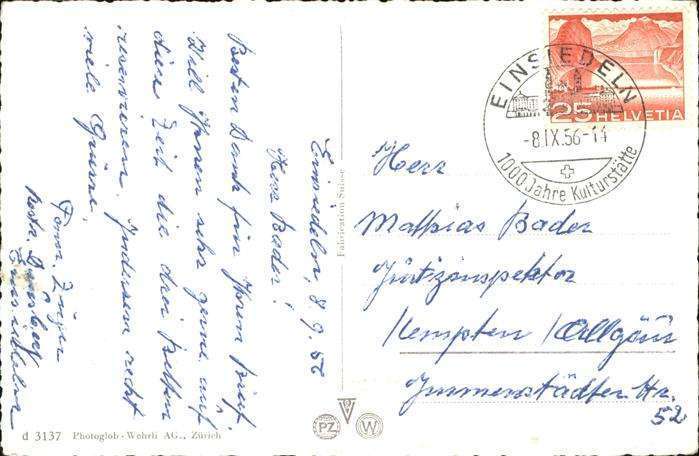 Einsiedeln, 8.9.56
Herr Bader!
Besten Dank für Ihren Brief.
Will Ihnen sehr gerne auf
diese Zeit die drei Betten
reservieren. Indessen recht
viele Grüsse.
Einsiedeln
Fabrication Suisse
d 3137 Photoglob-Wehrli AG., Zürich
PZ
W
EINSIEDELN
-8.IX.56-14
1000 Jahre Kulturstätte
25 HELVETIA
Herr
Mathias Bader
Justizinspektor
Kempten /Allgäu
Immenstädter Str.
52